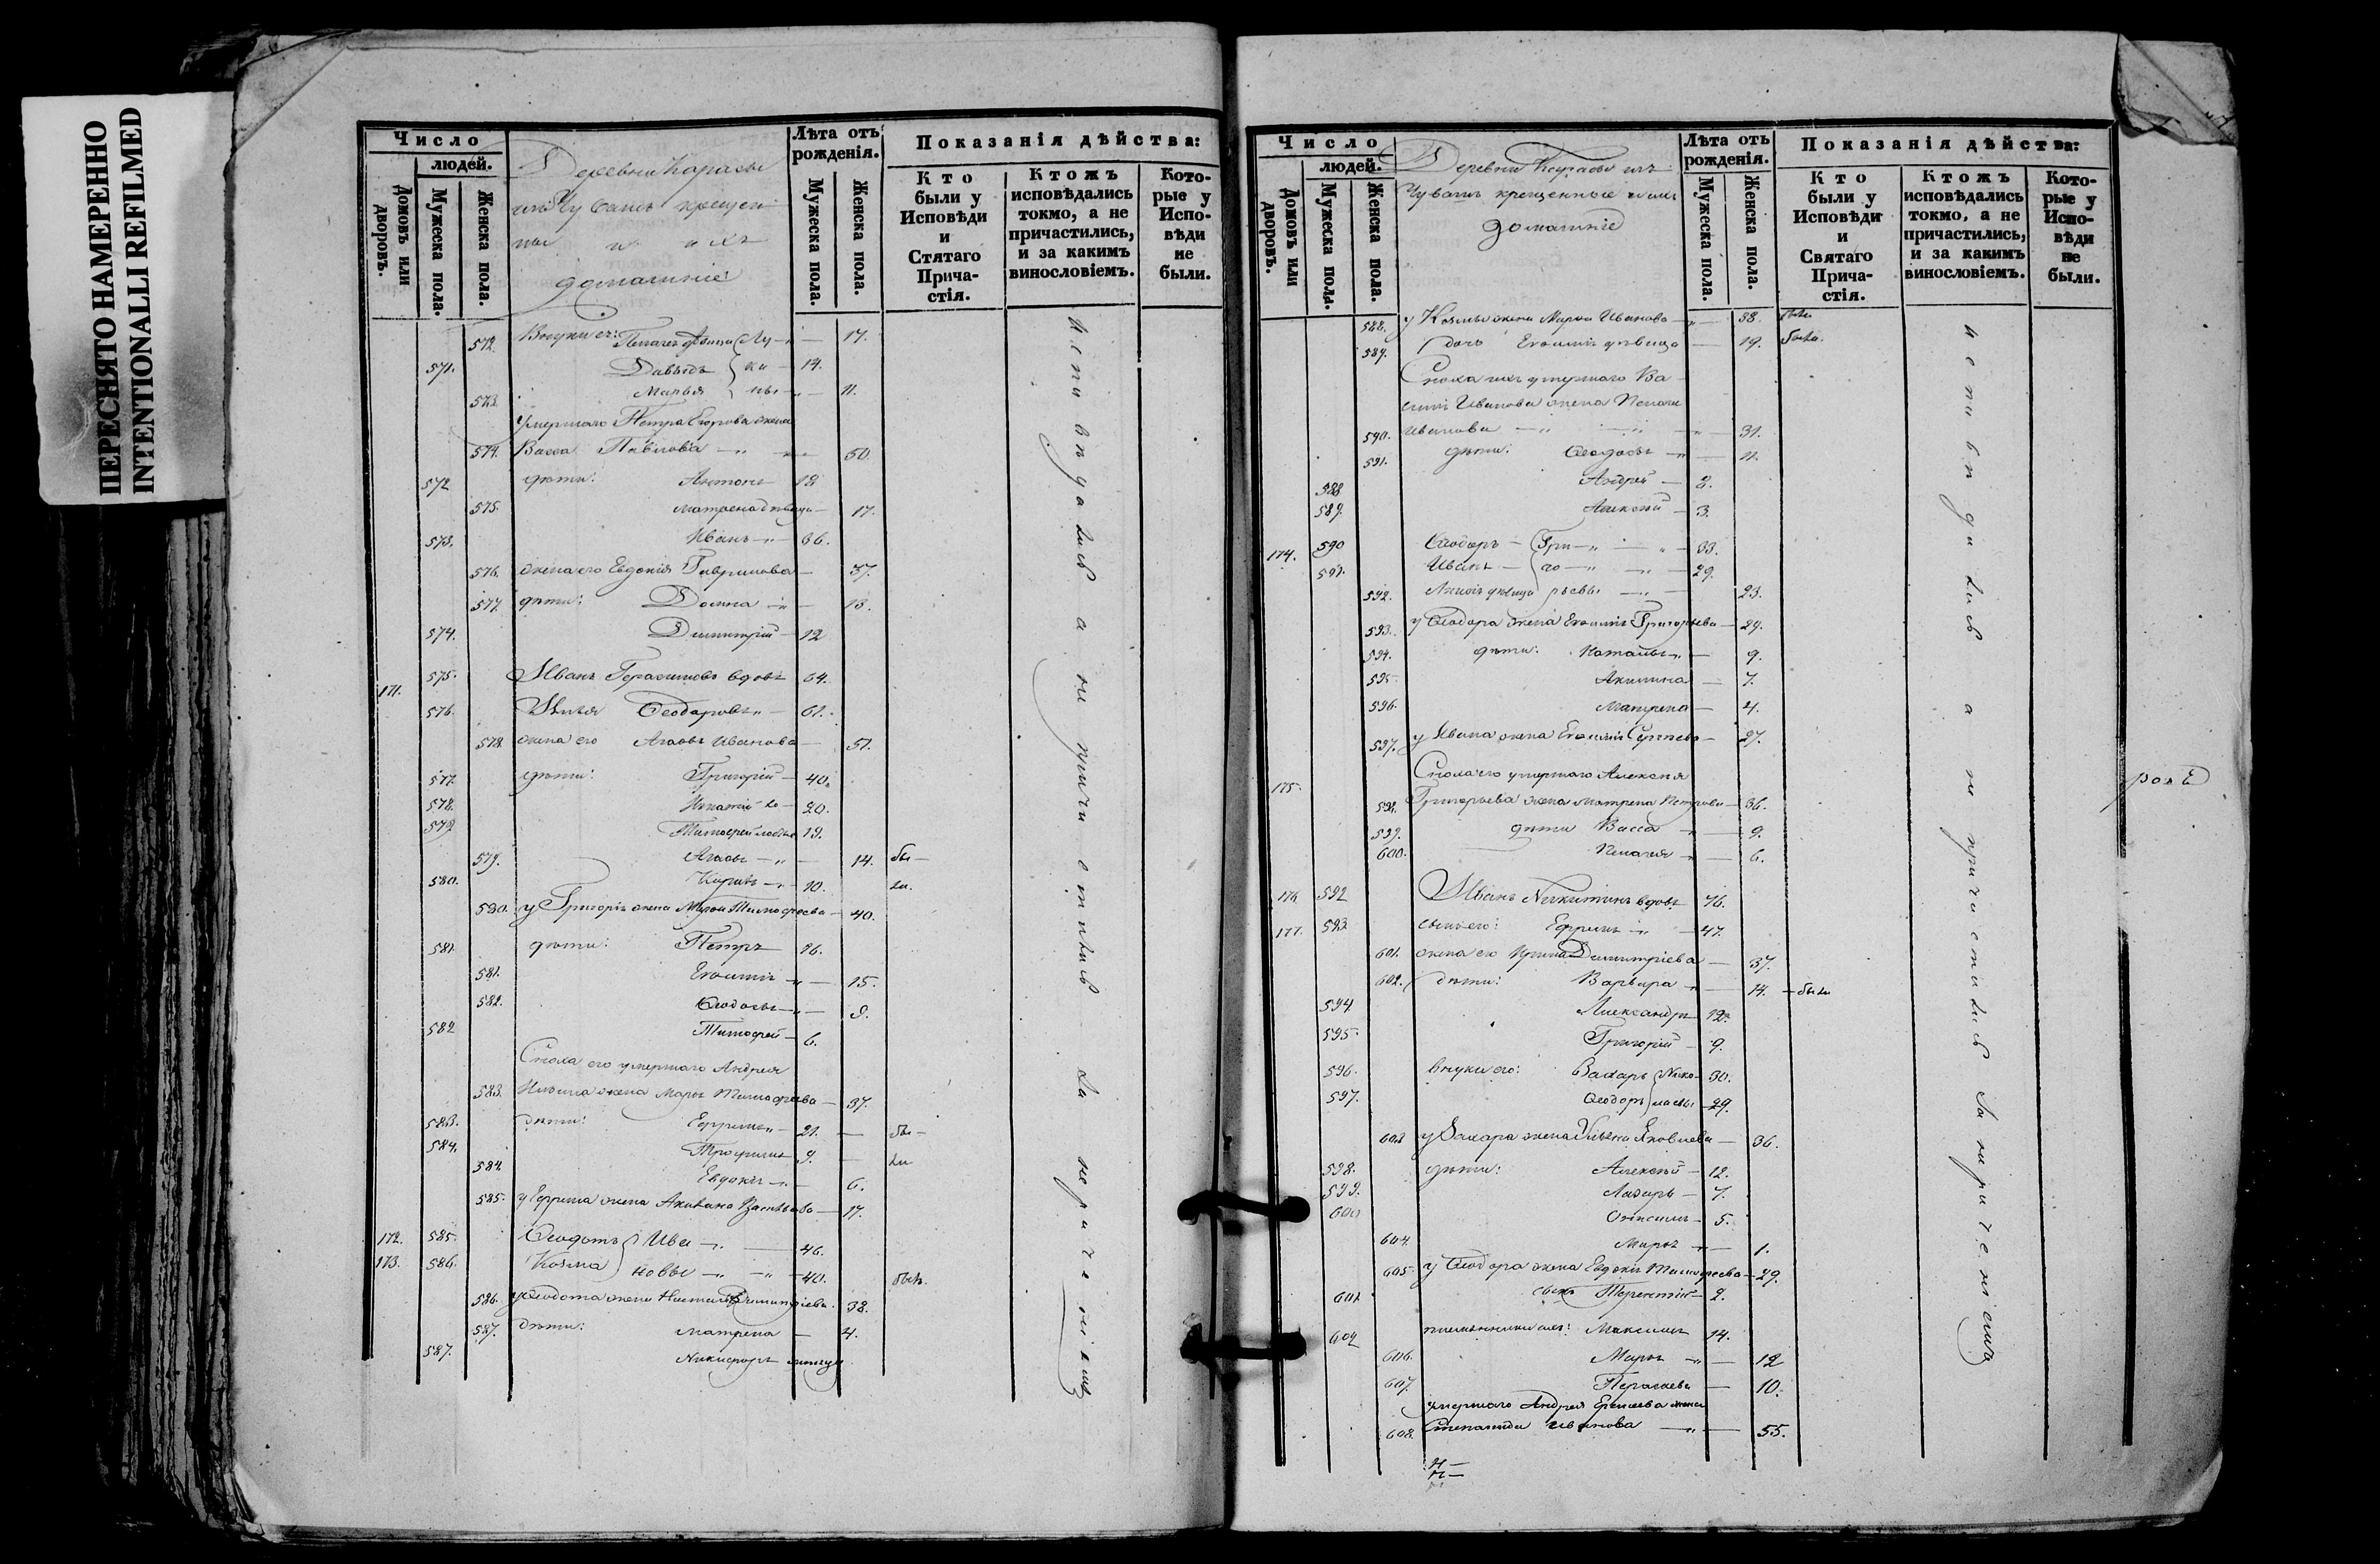 ПЕРЕСНЯТО НАМЕРЕННО
INTENTIONALLI REFILMED
Число
людей.
Домовъ или дворовъ.
Мужеска пола.
Женска пола.
Деревни Карасы
изъ Чувашъ крещен
ные и ихъ
домашніе
Лѣта отъ рожденія.
Мужеска пола.
Женска пола.
Показанія дѣйства:
Кто были у Исповѣди и Стятаго Прича- стія.
Ктожъ исповѣдались токмо, а не причастились, и за какимъ винословіемъ.
Кото- рые у Испо- вѣди не были.
572. Внуки ея: Пелагея дѣвица 17.
571. Давыдъ 14.
573. Марья 11.
умершаго Петра Егорова жена
574. Васса Павлова 50.
572 дѣти: Антонъ 18
575. Матрена дѣвица 17.
573. Иванъ 36.
576. жена его Евдокія Гаврилова 37.
577. дѣти: Домна 13.
574. Димитрій 12
171. 575. Иванъ Герасимовъ вдовъ 64.
576. Илья Ѳеодоровъ 61.
578. жена его Агаѳья Иванова 51.
577. дѣти: Григорій 40.
578. Игнатій 20.
579 Тимоѳей 19.
579. Агаѳья 14. бы-
580. Кирилъ 10. ли.
580. у Григорія жена Марѳа Тимоѳеева 40.
581. дѣти: Петръ 16.
581. Евѳимія 15.
582. Ѳеодосья 9.
582 Тимоѳей 6.
Сноха его умершаго Андрея
583. Ильина жена Марья Тимоѳеева 37.
583. дѣти: Ефремъ 21. бы-
584. Трофимъ 9. ли
584. Евдокія 6.
585. у Ефрема жена Акилина Васильева 17.
172. 585. Ѳеодотъ Ива 46.
173. 586. Козма новы 40. былъ.
586. у Ѳеодота жена Настасья Димитріева 38.
587. дѣти: Матрена 4.
587. Никифоръ
исповѣдались а не причастились за нераченіемъ
Число
людей.
Домовъ или дворовъ.
Мужеска пола.
Женска пола.
Деревни Карасы изъ
Чувашъ крещенные и ихъ
домашніе
Лѣта отъ рожденія.
Мужеска пола.
Женска пола.
Показанія дѣйства:
Кто были у Исповѣди и Святаго Прича- стія.
Ктожъ исповѣдались токмо, а не причастились, и за какимъ винословіемъ.
Кото- рые у Испо- вѣди не были.
588. у Козмы жена Марѳа Иванова 38. была
589. дочь Евѳимія дѣвица 19. была.
Сноха ихъ умершаго Ва
силія Иванова жена Пелагея
590. Иванова 31.
591. дѣти: Ѳеодосья 11.
588 Андрей 8.
589. Алексѣй 3.
174. 590 Ѳеодоръ Гри 33.
591. Иванъ го 29.
592. дѣвица рьевы 23.
593. у Ѳеодора жена Евѳимія Григорьева 29.
594. дѣти: Наталья 9.
595. Акилина 7.
596. Матрена 4.
597. у Ивана жена Евѳимія Сергѣева 27.
175. Сноха его умершаго Алексѣя
598. Григорьева жена Матрена Петрова 36.
599. дѣти Васса 9.
600. Пелагея 6.
176. 592 Иванъ Никитинъ вдовъ 76.
177. 593 сынъ его: Ефремъ 47.
601. жена его Ирина Димитріева 37.
602. дѣти: Варвара 14. была
594 Александръ 12.
595. Григорій 9.
596. внуки его: Захаръ Нико 30.
597. Ѳеодоръ лаевы 29.
603 у Захара жена Ульяна Яковлева 36.
598. дѣти: Алексѣй 12.
599. Лазарь 7.
600 Онисимъ 5.
604. Марья 1.
605. у Ѳеодора жена Евдокія Тимоѳеева 29.
601. сынъ Терентій 2.
602 племянники ихъ: Максимъ 14.
606. Марья 12
607. Перасковья 10.
умершаго Андрея Ерем жена
608. Степанида Иванова 55.
исповѣдались а не причастились за нераченіемъ